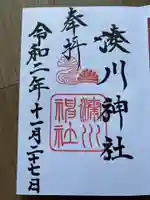 奉拝
湊川神社
湊川神社
令和二年十一月二十七日